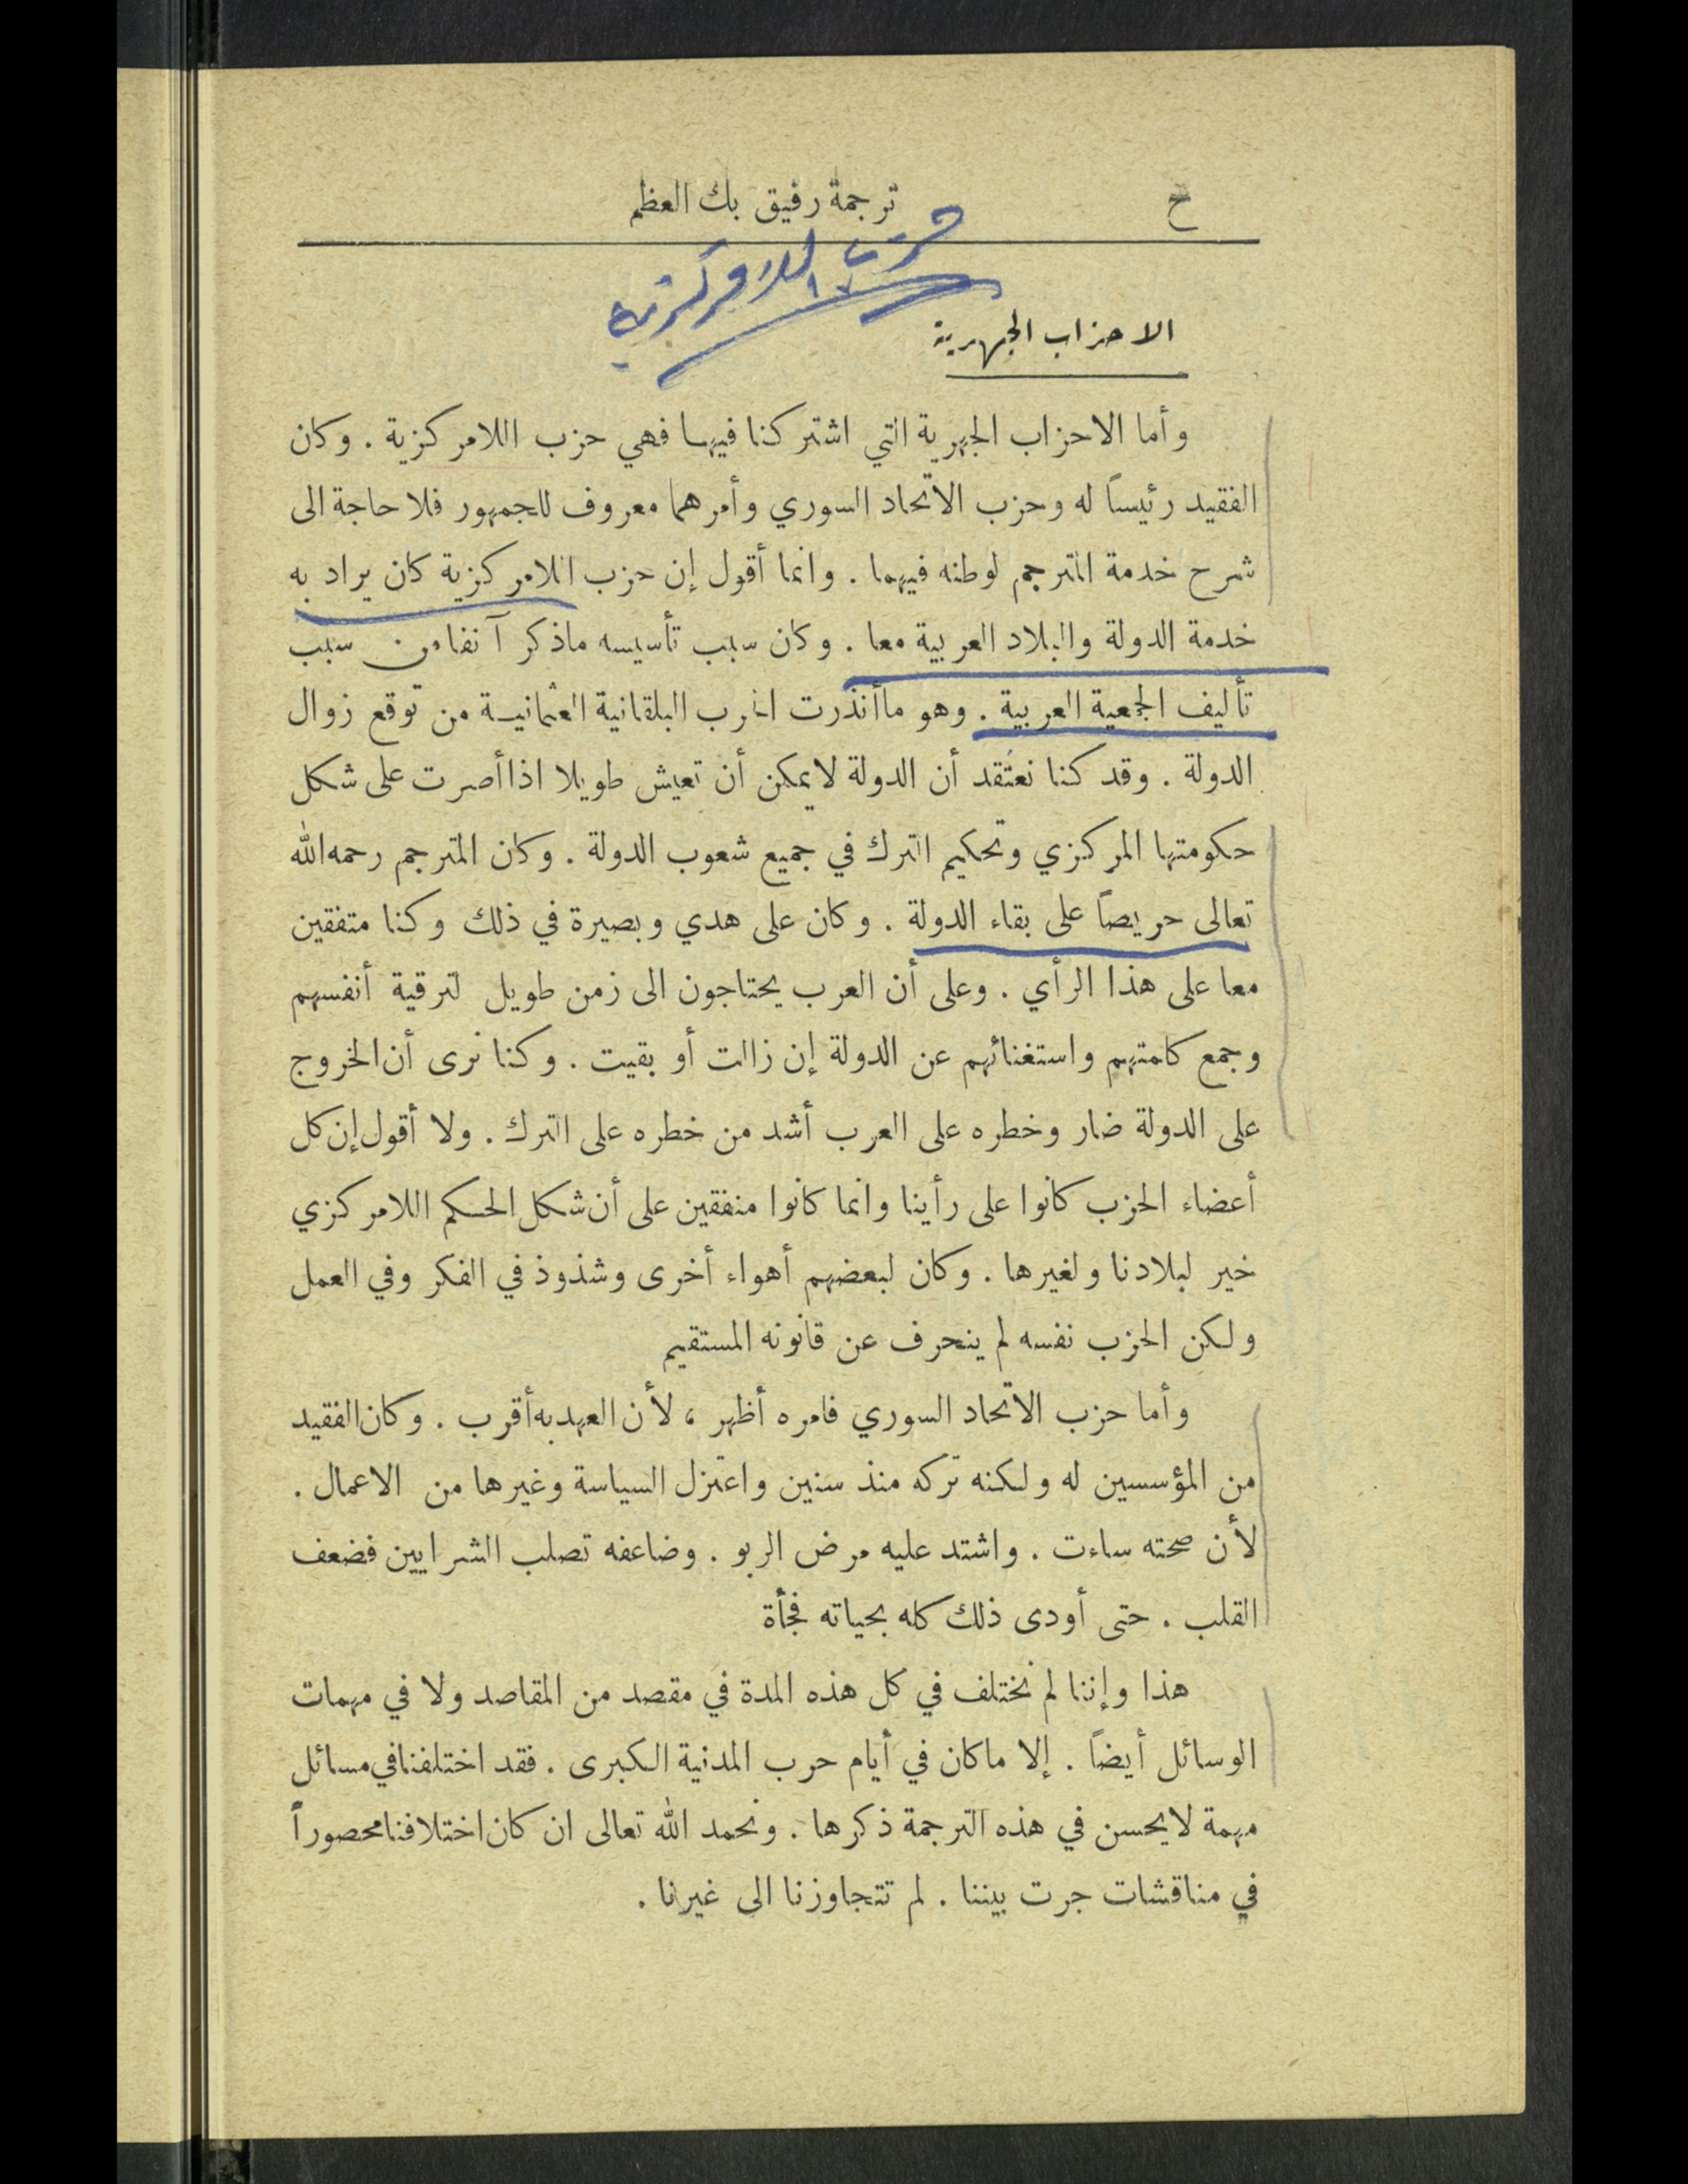 ح
ترجمة رفيق بك العظم
حزب اللامركزية
الاحزاب الجهرية
وأما الاحزاب الجهرية التي اشتركنا فيها فهي حزب اللامركزية . وكان
الفقيد رئيساً له وحزب الاتحاد السوري وأمرهما معروف للجمهور فلا حاجة الى
شرح خدمة المترجم لوطنه فيهما . وانما أقول إن حزب اللامركزية كان يراد به
خدمة الدولة والبلاد العربية معا . وكان سبب تأسيسه ماذكر آنفا من سبب
تأليف الجمعية العربية . وهو ماأنذرت الحرب البلقانية العثمانية من توقع زوال
الدولة . وقد كنا نعتقد أن الدولة لايمكن أن تعيش طويلا اذا أصرت على شكل
حكومتها المركزي وتحكيم الترك في جميع شعوب الدولة . وكان المترجم رحمه الله
تعالى حريصاً على بقاء الدولة . وكان على هدي وبصيرة في ذلك وكنا متفقين
معا على هذا الرأي . وعلى أن العرب يحتاجون الى زمن طويل لترقية أنفسهم
وجمع كلمتهم واستغنائهم عن الدولة إن زالت أو بقيت . وكنا نرى أن الخروج
على الدولة ضار وخطره على العرب أشد من خطره على الترك . ولا أقول إن كل
أعضاء الحزب كانوا على رأينا وانما كانوا متفقين على أن شكل الحكم اللامركزي
خير لبلادنا ولغيرها . وكان لبعضهم أهواء أخرى وشذوذ في الفكر وفي العمل
ولكن الحزب نفسه لم ينحرف عن قانونه المستقيم
وأما حزب الاتحاد السوري فامره أظهر ، لأن العهد به أقرب . وكان الفقيد
من المؤسسين له ولكنه تركه منذ سنين واعتزل السياسة وغيرها من الاعمال .
لأن صحته ساءت . واشتد عليه مرض الربو . وضاعفه تصلب الشرايين فضعف
القلب . حتى أودى ذلك كله بحياته فجأة
هذا وإننا لم نختلف في كل هذه المدة في مقصد من المقاصد ولا في مهمات
الوسائل أيضاً . إلا ماكان في أيام حرب المدنية الكبرى . فقد اختلفنا في مسائل
مهمة لايحسن في هذه الترجمة ذكرها . ونحمد الله تعالى ان كان اختلافنا محصوراً
في مناقشات جرت بيننا . لم تتجاوزنا الى غيرنا .